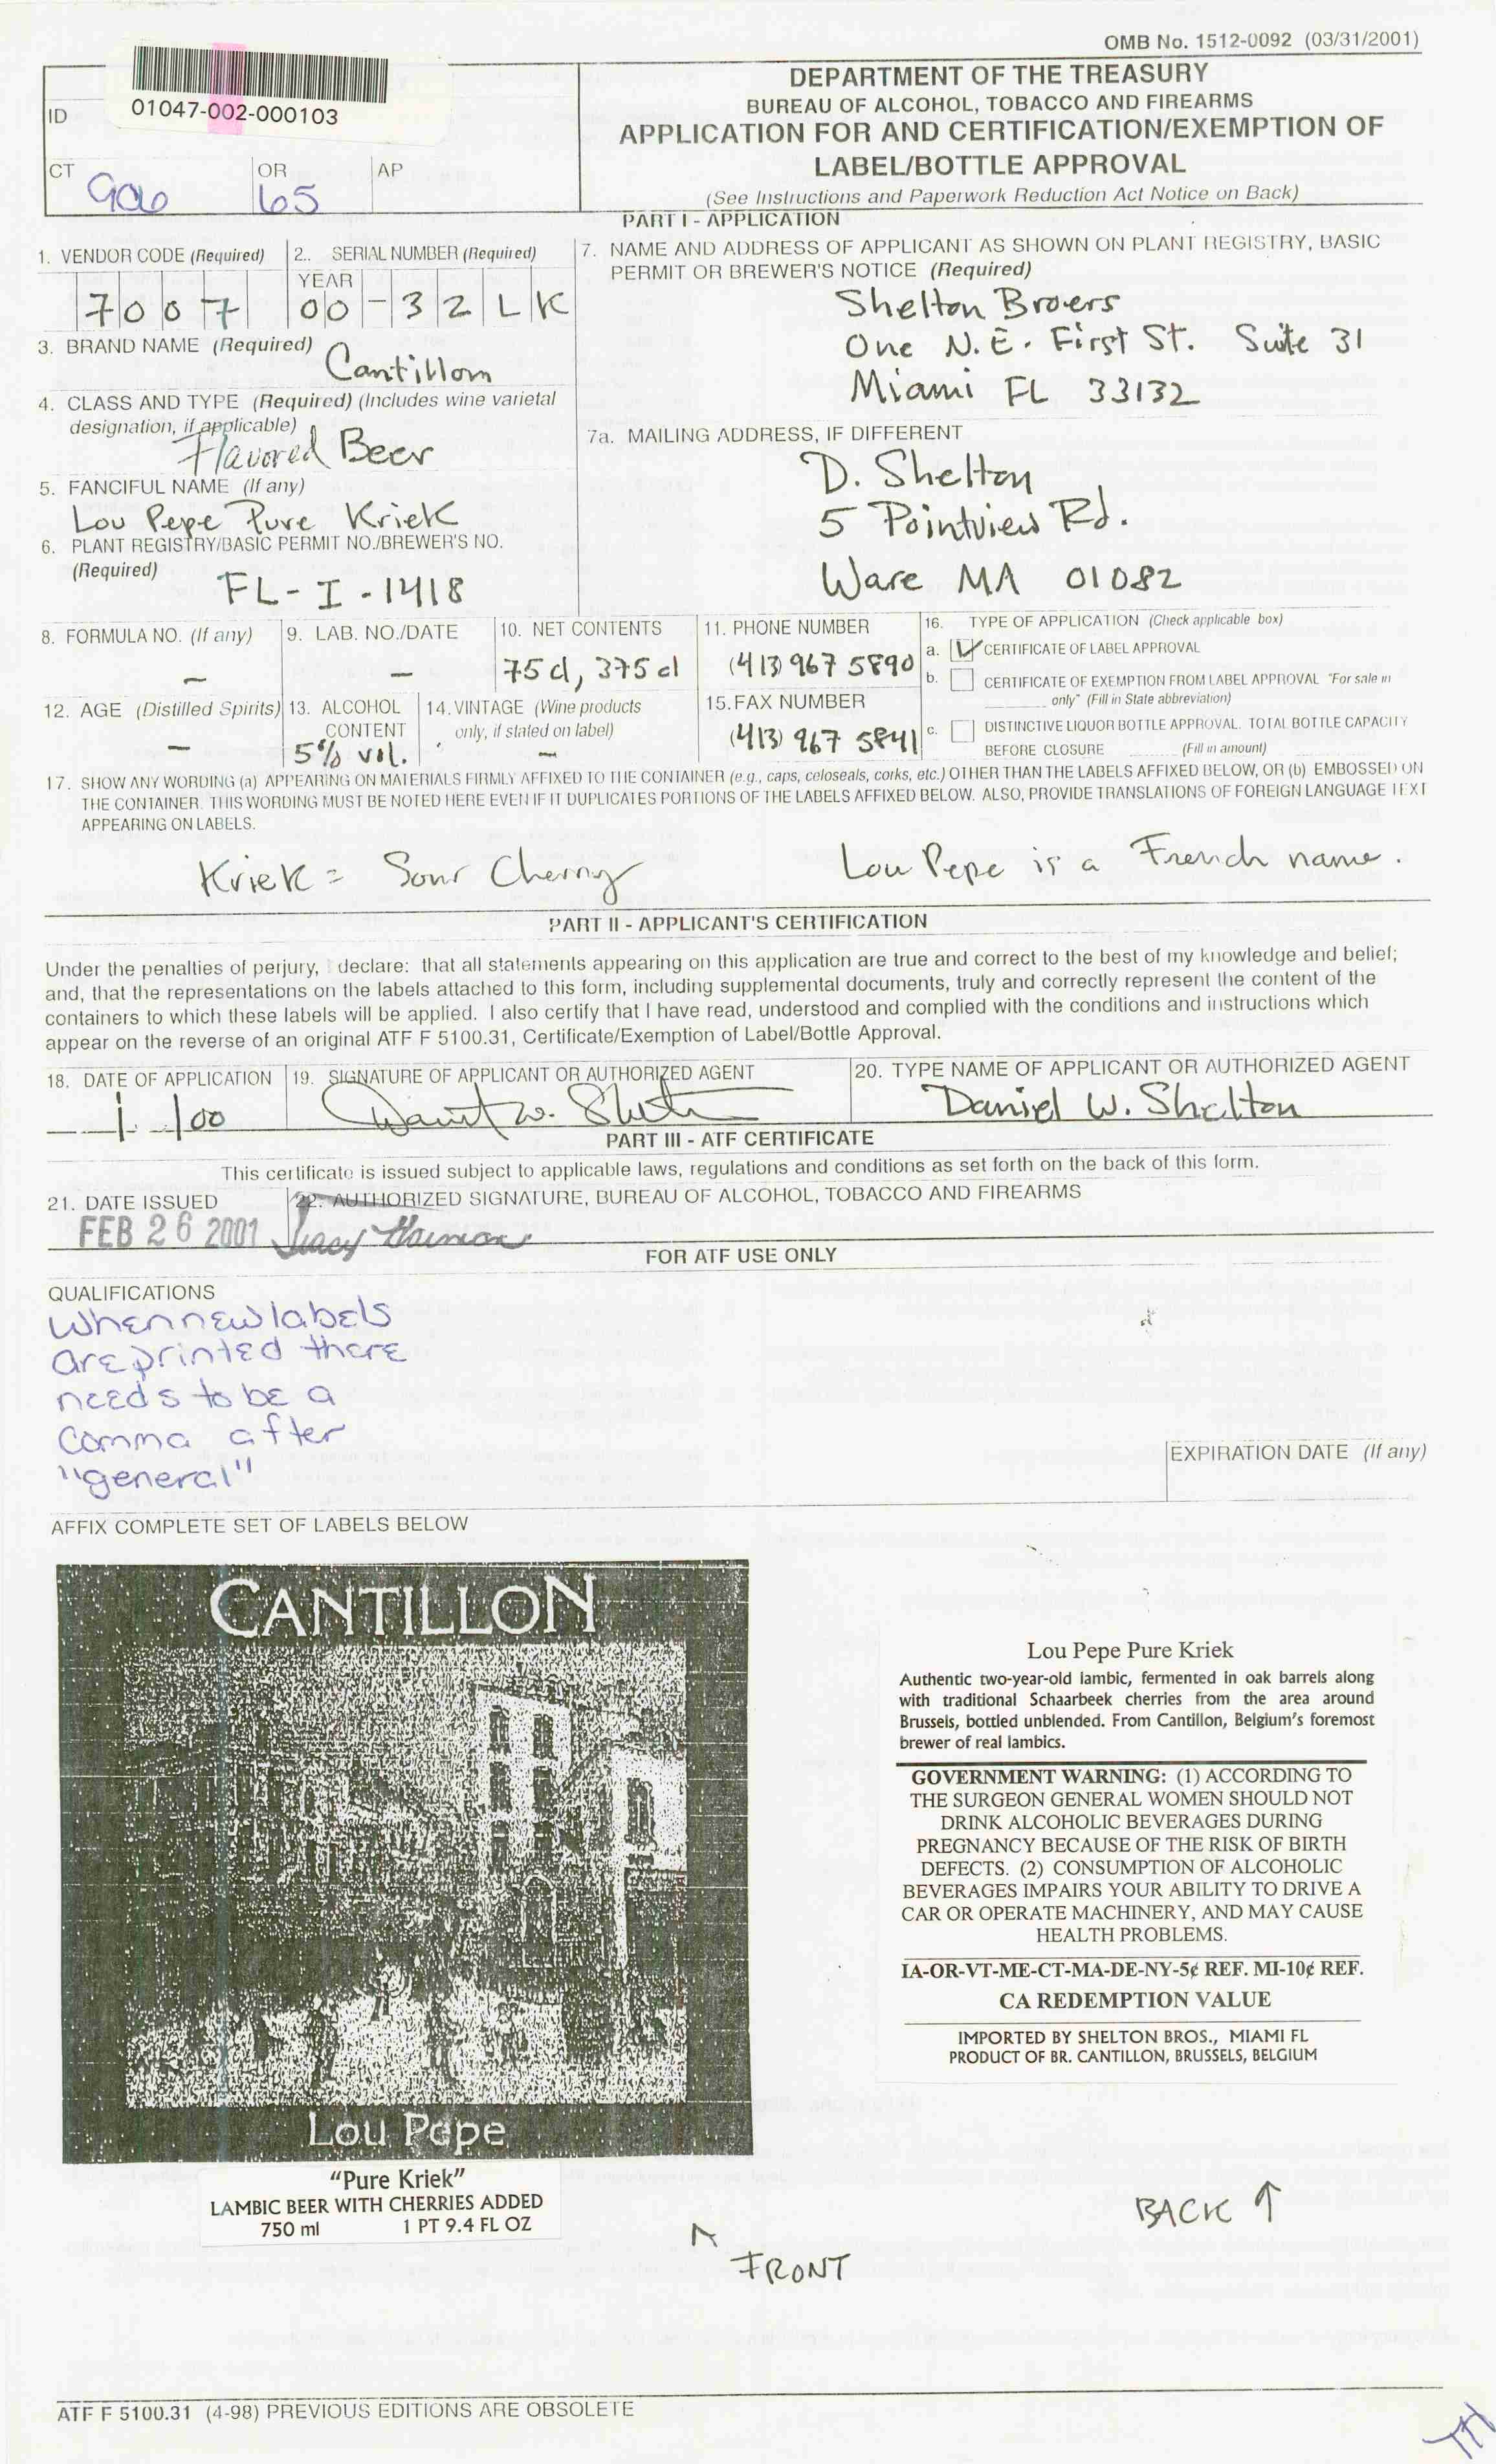 OMB No. 1512-0092 (03/31/2001)
01047-002-000103
ID
CT
906
OR
65
AP
DEPARTMENT OF THE TREASURY
BUREAU OF ALCOHOL, TOBACCO AND FIREARMS
APPLICATION FOR AND CERTIFICATION/EXEMPTION OF
LABEL/BOTTLE APPROVAL
(See Instructions and Paperwork Reduction Act Notice on Back)
PART I - APPLICATION
1. VENDOR CODE (Required)
7007
2.. SERIAL NUMBER (Required)
YEAR
00-32LK
3. BRAND NAME (Required)
Cantillon
4. CLASS AND TYPE (Required) (Includes wine varietal
designation, if applicable)
Flavored Beer
5. FANCIFUL NAME (If any)
Lou Pepe Pure Kriek
6. PLANT REGISTRY/BASIC PERMIT NO./BREWER'S NO.
(Required)
FL-I-1418
7. NAME AND ADDRESS OF APPLICANT AS SHOWN ON PLANT REGISTRY, BASIC
PERMIT OR BREWER'S NOTICE (Required)
Shelton Broers
One N.E. First St. Suite 31
Miami FL 33132
7a. MAILING ADDRESS, IF DIFFERENT
D. Shelton
5 Pointview Rd.
Ware MA 01082
8. FORMULA NO. (If any)
–
9. LAB. NO./DATE
–
10. NET CONTENTS
75cl, 375cl
11. PHONE NUMBER
(413) 967 5890
12. AGE (Distilled Spirits)
–
13. ALCOHOL
CONTENT
5% vol.
14. VINTAGE (Wine products
only, if stated on label)
–
15. FAX NUMBER
(413) 967 5841
16. TYPE OF APPLICATION (Check applicable box)
a. CERTIFICATE OF LABEL APPROVAL
b. CERTIFICATE OF EXEMPTION FROM LABEL APPROVAL "For sale in
only" (Fill in State abbreviation)
c. DISTINCTIVE LIQUOR BOTTLE APPROVAL. TOTAL BOTTLE CAPACITY
BEFORE CLOSURE (Fill in amount)
17. SHOW ANY WORDING (a) APPEARING ON MATERIALS FIRMLY AFFIXED TO THE CONTAINER (e.g., caps, celoseals, corks, etc.) OTHER THAN THE LABELS AFFIXED BELOW, OR (b) EMBOSSED ON
THE CONTAINER. THIS WORDING MUST BE NOTED HERE EVEN IF IT DUPLICATES PORTIONS OF THE LABELS AFFIXED BELOW. ALSO, PROVIDE TRANSLATIONS OF FOREIGN LANGUAGE TEXT
APPEARING ON LABELS.
Kriek = Sour Cherry
Lou Pepe is a French name.
PART II - APPLICANT'S CERTIFICATION
Under the penalties of perjury, declare: that all statements appearing on this application are true and correct to the best of my knowledge and belief;
and, that the representations on the labels attached to this form, including supplemental documents, truly and correctly represent the content of the
containers to which these labels will be applied. I also certify that I have read, understood and complied with the conditions and instructions which
appear on the reverse of an original ATF F 5100.31, Certificate/Exemption of Label/Bottle Approval.
18. DATE OF APPLICATION
19. SIGNATURE OF APPLICANT OR AUTHORIZED AGENT
20. TYPE NAME OF APPLICANT OR AUTHORIZED AGENT
Daniel W. Shelton
PART III - ATF CERTIFICATE
This certificate is issued subject to applicable laws, regulations and conditions as set forth on the back of this form.
21. DATE ISSUED
FEB 26 2001
22. AUTHORIZED SIGNATURE, BUREAU OF ALCOHOL, TOBACCO AND FIREARMS
FOR ATF USE ONLY
QUALIFICATIONS
When new labels
are printed there
needs to be a
comma after
"general"
EXPIRATION DATE (If any)
AFFIX COMPLETE SET OF LABELS BELOW
CANTILLON
Lou Pepe
"Pure Kriek"
LAMBIC BEER WITH CHERRIES ADDED
750 ml 1 PT 9.4 FL OZ
FRONT
Lou Pepe Pure Kriek
Authentic two-year-old lambic, fermented in oak barrels along
with traditional Schaarbeek cherries from the area around
Brussels, bottled unblended. From Cantillon, Belgium's foremost
brewer of real lambics.
GOVERNMENT WARNING: (1) ACCORDING TO
THE SURGEON GENERAL WOMEN SHOULD NOT
DRINK ALCOHOLIC BEVERAGES DURING
PREGNANCY BECAUSE OF THE RISK OF BIRTH
DEFECTS. (2) CONSUMPTION OF ALCOHOLIC
BEVERAGES IMPAIRS YOUR ABILITY TO DRIVE A
CAR OR OPERATE MACHINERY, AND MAY CAUSE
HEALTH PROBLEMS.
IA-OR-VT-ME-CT-MA-DE-NY-5¢ REF. MI-10¢ REF.
CA REDEMPTION VALUE
IMPORTED BY SHELTON BROS., MIAMI FL
PRODUCT OF BR. CANTILLON, BRUSSELS, BELGIUM
BACK ↑
ATF F 5100.31 (4-98) PREVIOUS EDITIONS ARE OBSOLETE